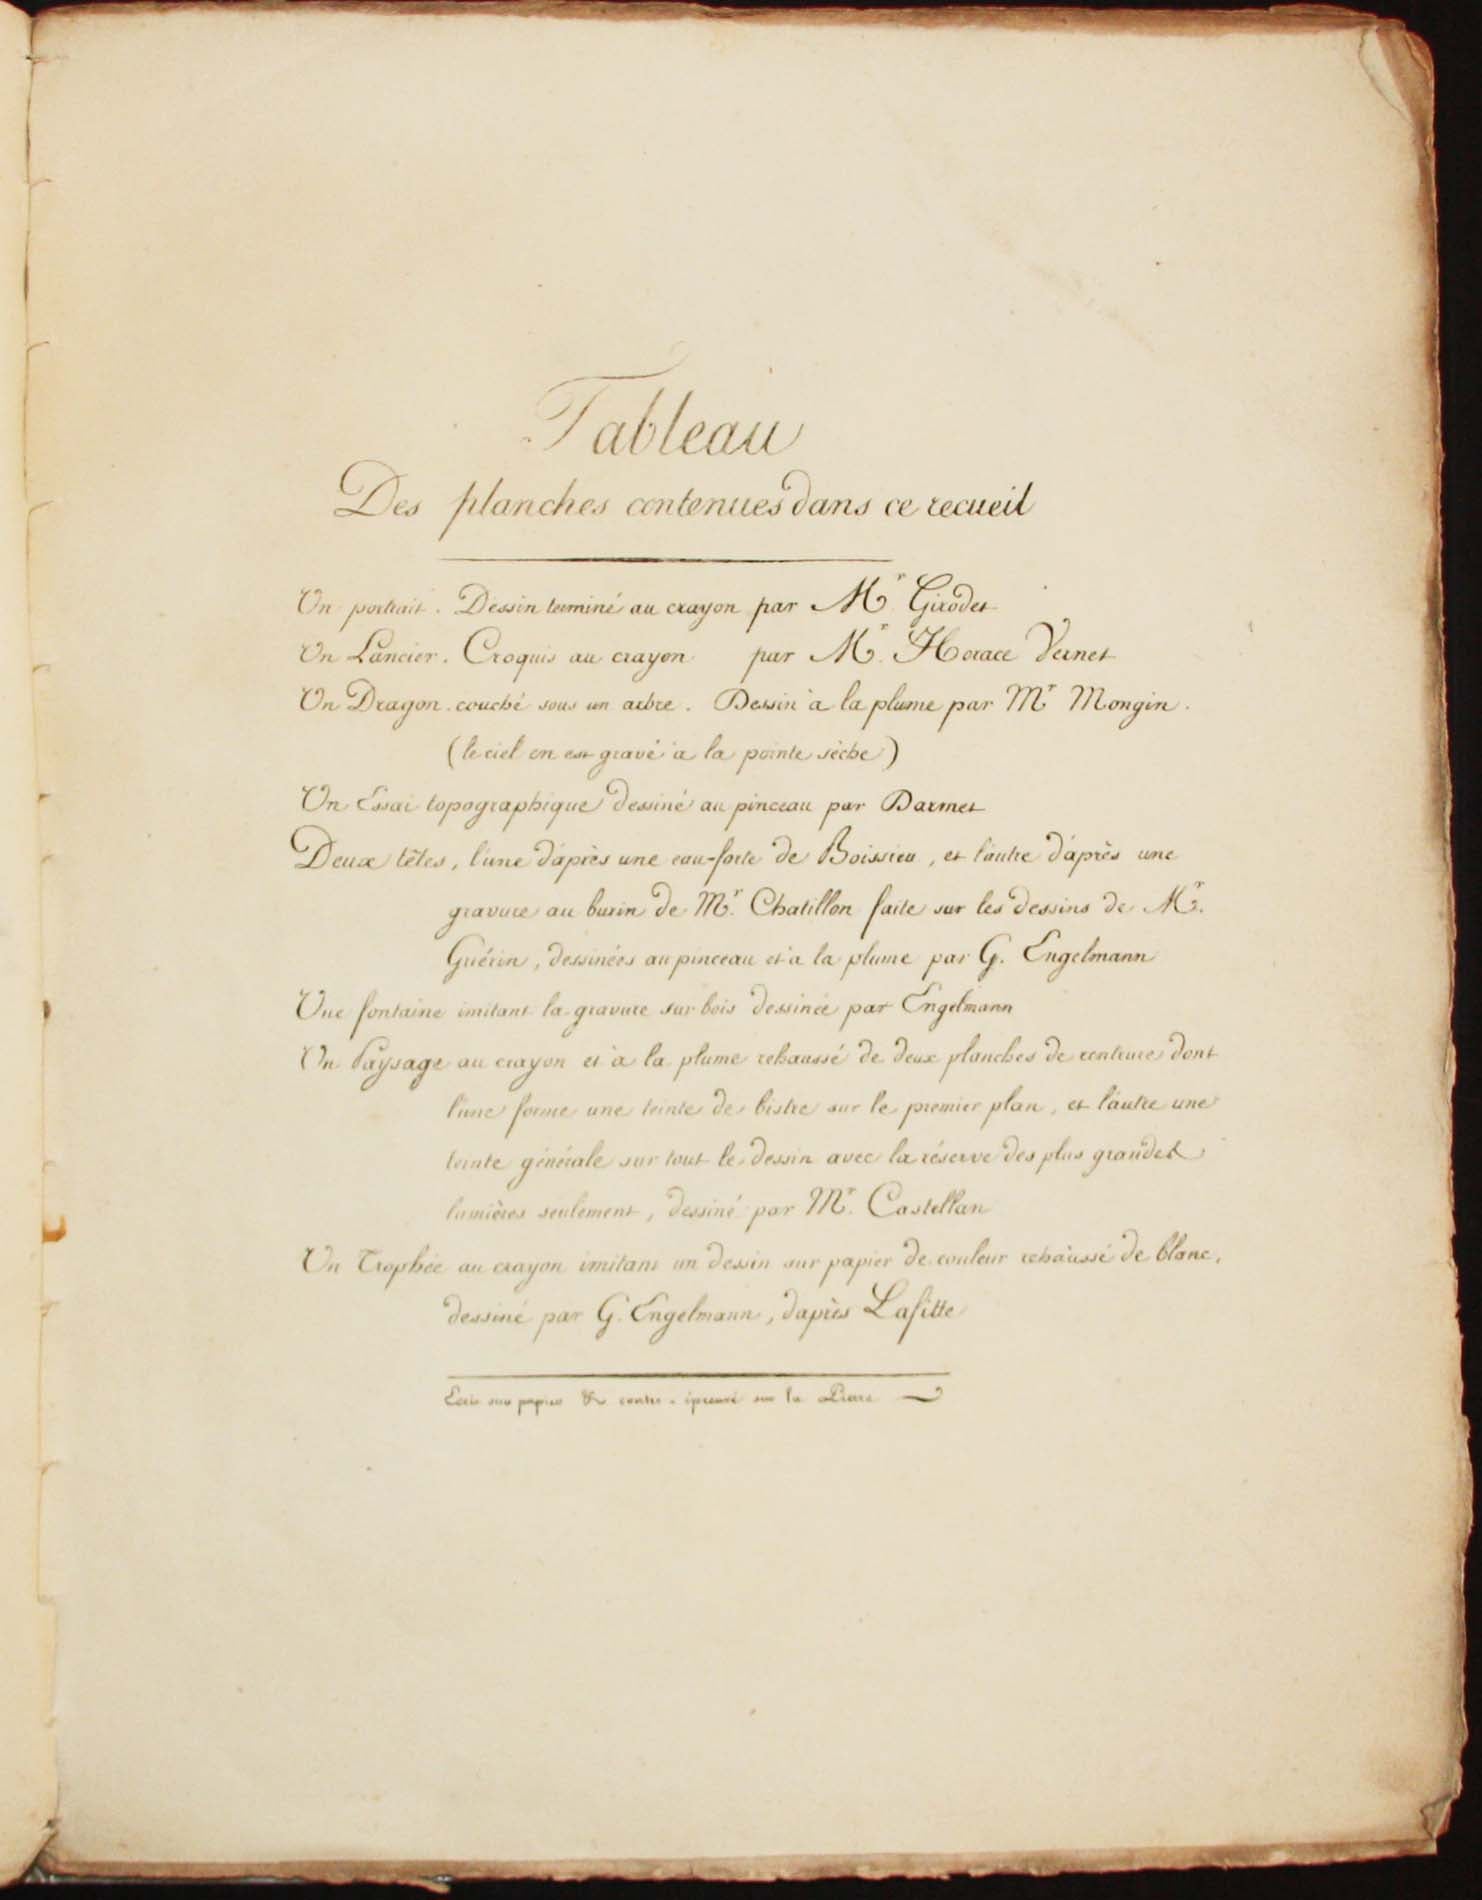 Tableau
Des planches contenues dans ce recueil
Un portrait. Dessin terminé au crayon par Mr Girodet
Un Lancier. Croquis au crayon par Mr. Horace Vernet
Un Dragon couché sous un arbre. Dessin à la plume par Mr Mongin.
(le ciel en est gravé à la pointe sèche)
Un Essai topographique dessiné au pinceau par Darmet
Deux têtes, l'une d'après une eau-forte de Boissieu, et l'autre d'après une
gravure au burin de Mr. Chatillon faite sur les dessins de Mr.
Guérin, dessinées au pinceau et à la plume par G. Engelmann
Une fontaine imitant la gravure sur bois dessinée par Engelmann
Un Paysage au crayon et à la plume rehaussé de deux planches de rentrure dont
l'une forme une teinte de bistre sur le premier plan, et l'autre une
teinte générale sur tout le dessin avec la réserve des plus grandes
lumières seulement, dessiné par Mr. Castellan
Un Trophée au crayon imitant un dessin sur papier de couleur rehaussé de blanc,
dessiné par G. Engelmann, d'après Lafitte
Ecrit sur papier & contre-épreuvé sur la Pierre